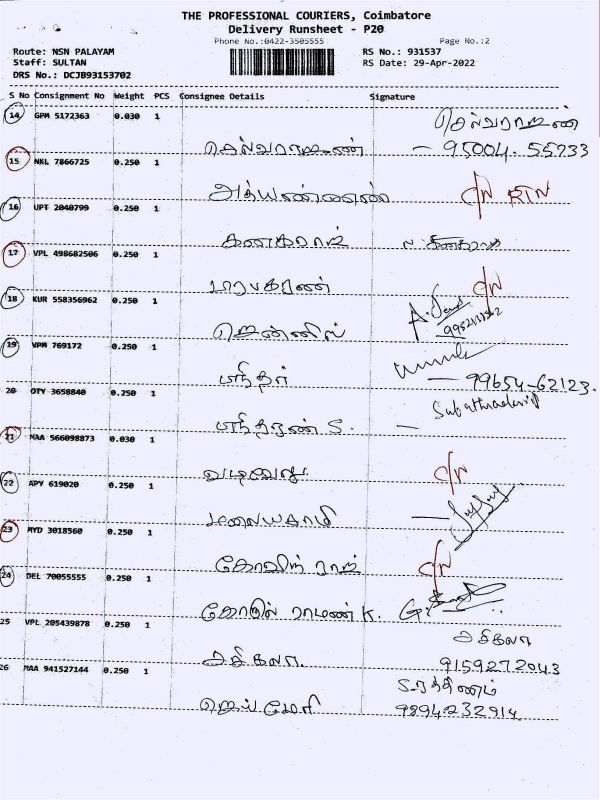 THE PROFESSIONAL COURIERS, Coimbatore
Delivery Runsheet - P20
Phone No.:0422-3505555 Page No.:2
Route: NSN PALAYAM RS No.: 931537
Staff: SULTAN RS Date: 29-Apr-2022
DRS No.: DCJB93153702
S No Consignment No Weight PCS Consignee Details Signature
14 GPM 5172363 0.030 1 செல்வராஜன்
செல்வராஜன் - 95004-55233
15 NKL 7866725 0.250 1
D/N RTN
16 UPT 2040799 0.250 1
கனகராஜ்
17 VPL 498682506 0.250 1
பாஸ்கரன் D/N
18 KUR 558356962 0.250 1
19 VPM 769172 0.250 1
- 99654-62123.
20 OTY 3658840 0.250 1
S. -
21 MAA 566098873 0.030 1
வடிவேலு D/N
22 APY 619020 0.250 1
-
23 MYD 3018560 0.250 1
கோவிந் ராஜ் D/N
24 DEL 70055555 0.250 1
கோவில் ராமன் K.
25 VPL 205439878 0.250 1 சசிகலா
சசிகலா. 9159272043
26 MAA 941527144 0.250 1 S. ரத்தினம்
ஜெய மேரி 9894232914